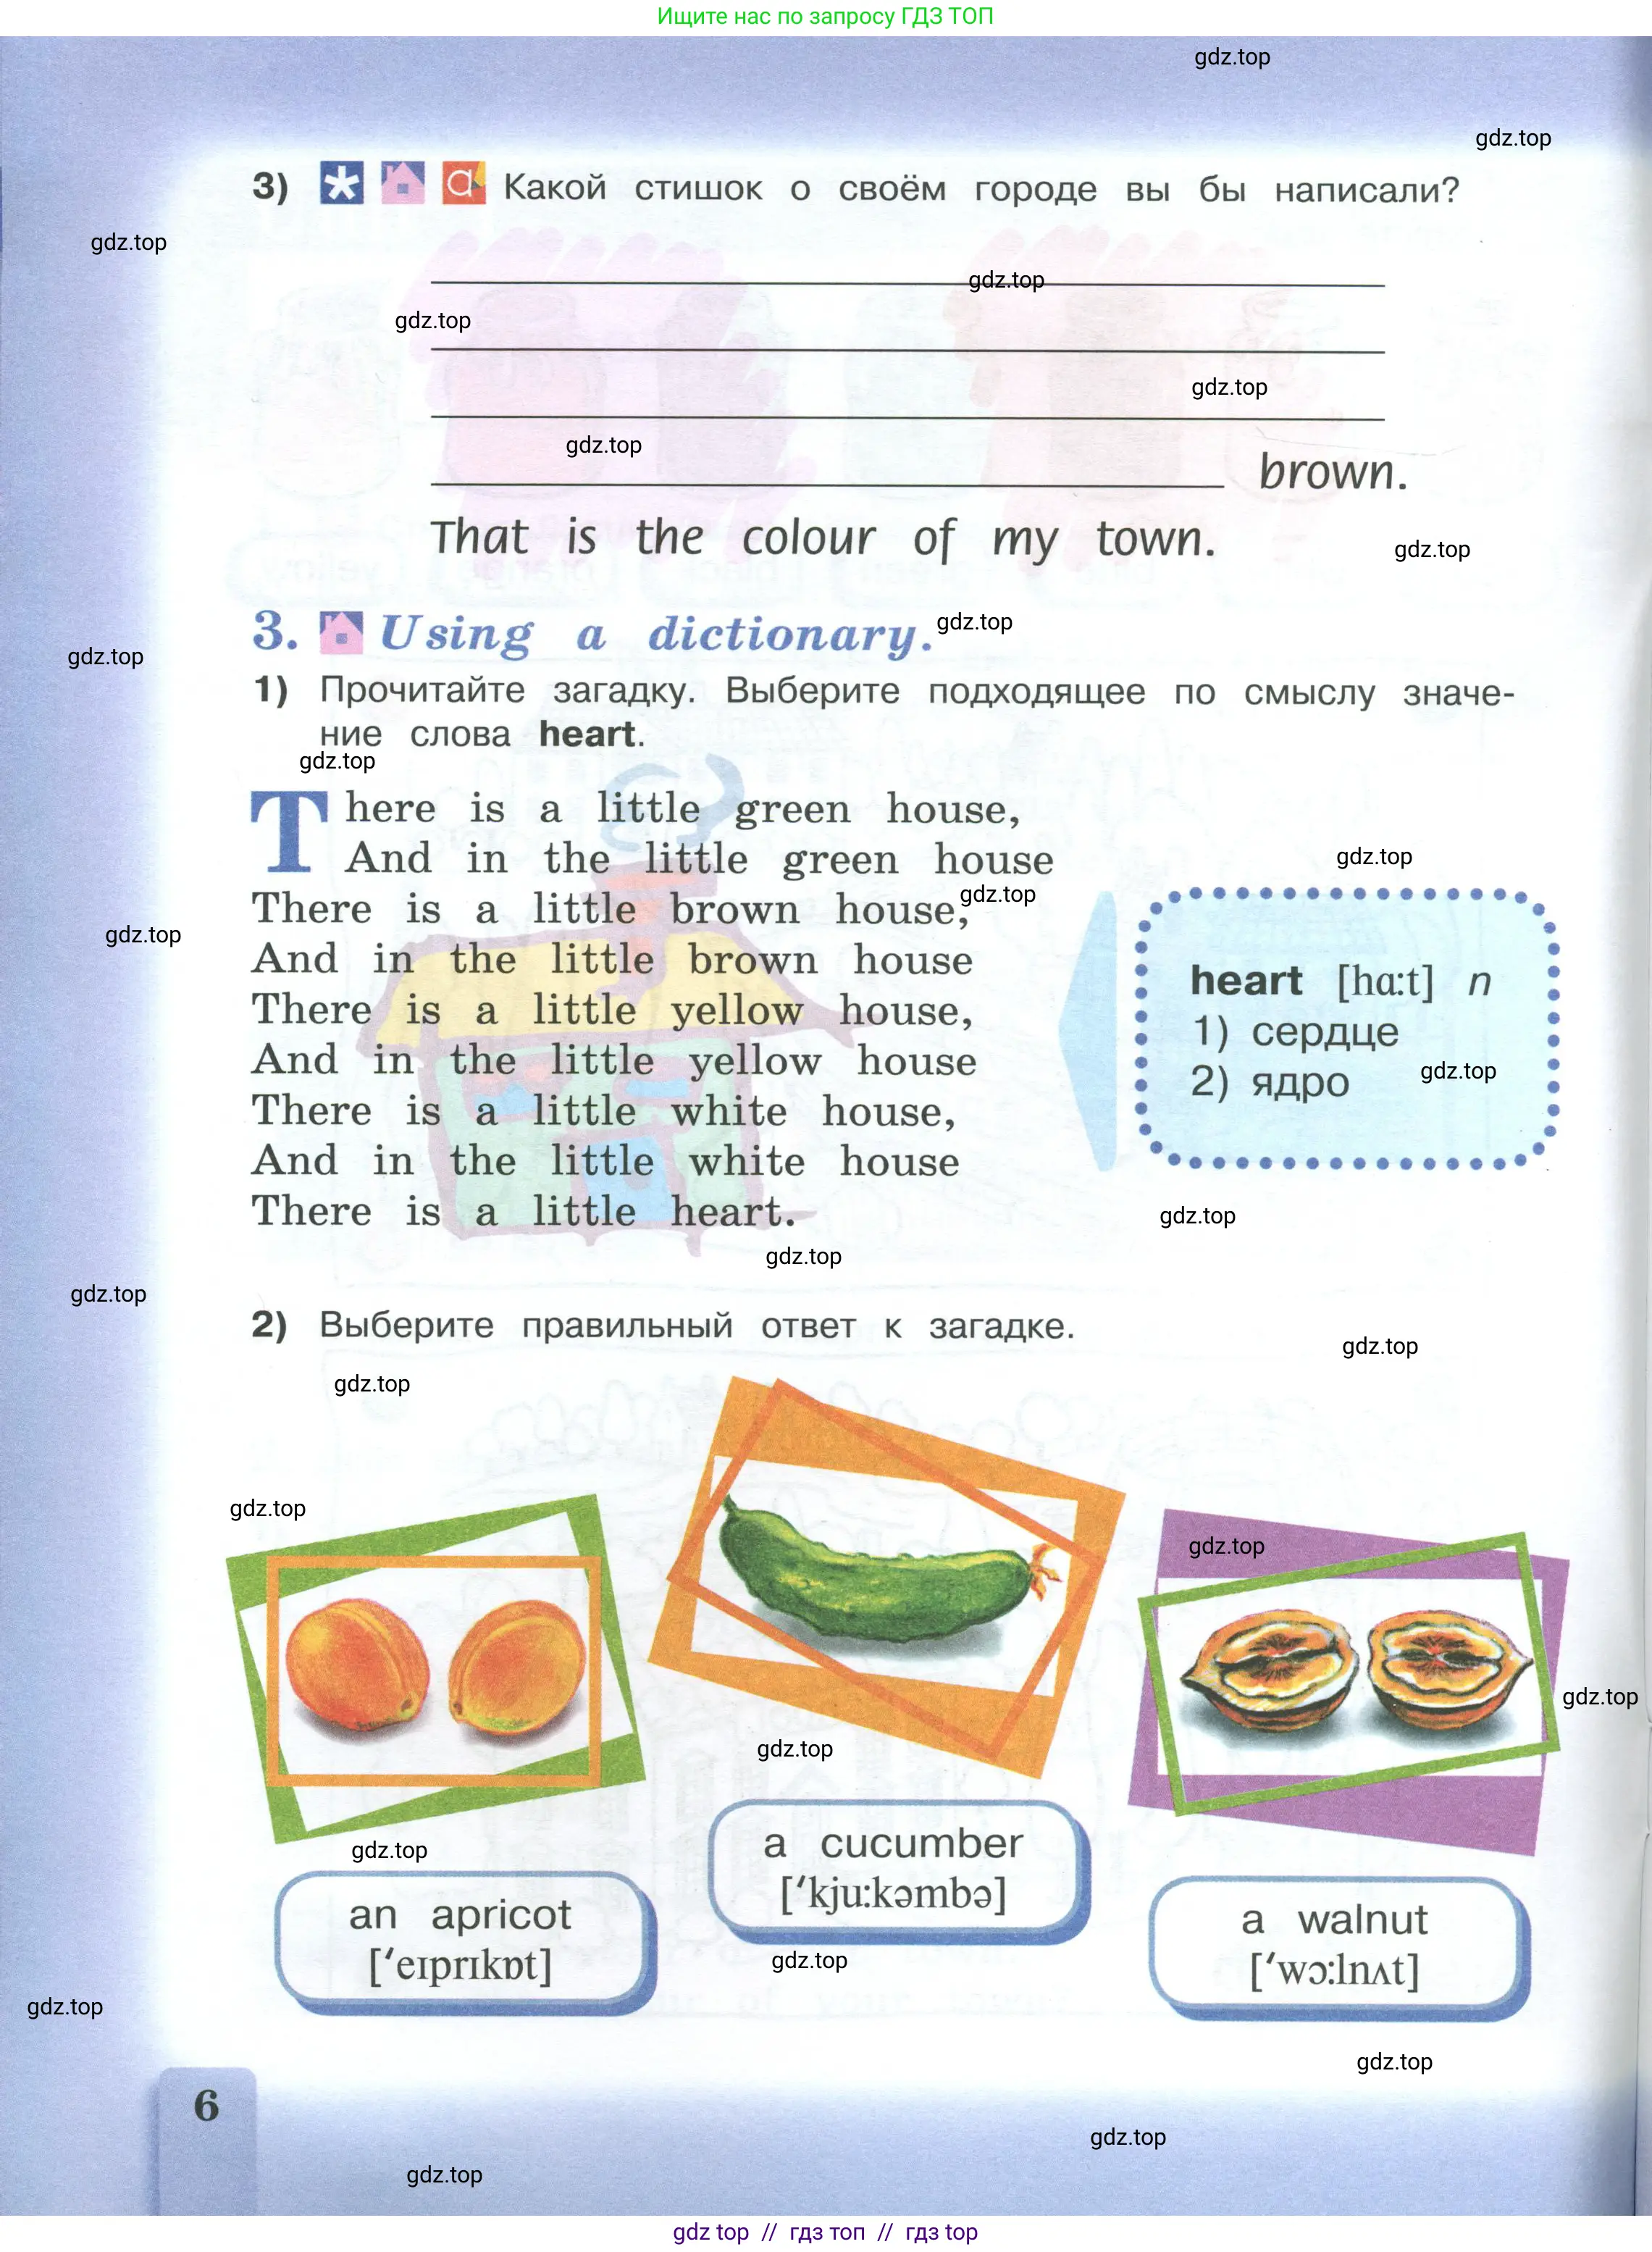 Ищите нас по запросу ГДЗ ТОП
gdz.top
gdz.top
3) a Какой стишок о своём городе вы бы написали?
gdz.top
gdz.top
gdz.top
gdz.top
gdz.top
brown.
That is the colour of my town.
gdz.top
3. Using a dictionary.
gdz.top
gdz.top
1) Прочитайте загадку. Выберите подходящее по смыслу значе-
ние слова heart.
gdz.top
There is a little green house,
And in the little green house
gdz.top
There is a little brown house,
gdz.top
gdz.top
And in the little brown house
There is a little yellow house,
And in the little yellow house
There is a little white house,
And in the little white house
There is a little heart.
heart [hɑ:t] n
1) сердце
2) ядро
gdz.top
gdz.top
gdz.top
gdz.top
2) Выберите правильный ответ к загадке.
gdz.top
gdz.top
gdz.top
gdz.top
gdz.top
gdz.top
gdz.top
an apricot
[ʹeɪprɪkɒt]
a cucumber
[ʹkju:kəmbə]
a walnut
[ʹwɔ:lnʌt]
gdz.top
gdz.top
gdz.top
6
gdz.top
gdz.top
gdz top // гдз топ // гдз top